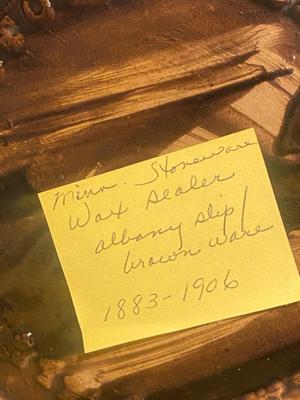 Minn. Stoneware
Wax sealer
albany slip/
brown ware
1883-1906